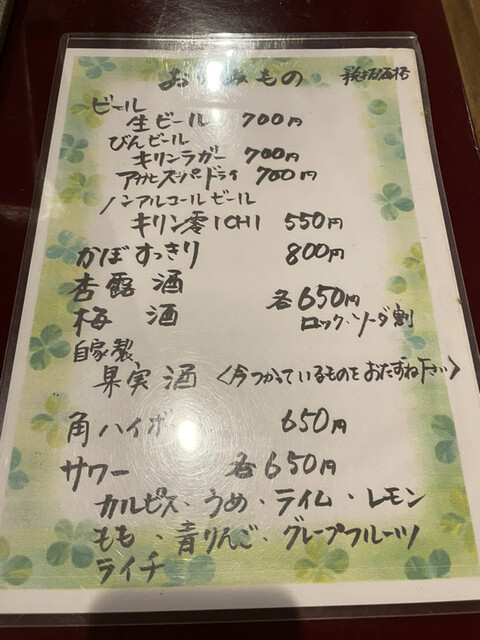 おのみもの 税抜価格
ビール
生ビール 700円
びんビール
キリンラガー 700円
アサヒスーパードライ 700円
ノンアルコールビール
キリン零ICHI 550円
かぼすっきり 800円
杏露酒
梅酒 各650円
ロック・ソーダ割
自家製
果実酒 〈今つかっているものをおたずね下さい〉
角ハイボール 650円
サワー 各650円
カルピス・うめ・ライム・レモン
もも・青りんご・グレープフルーツ
ライチ